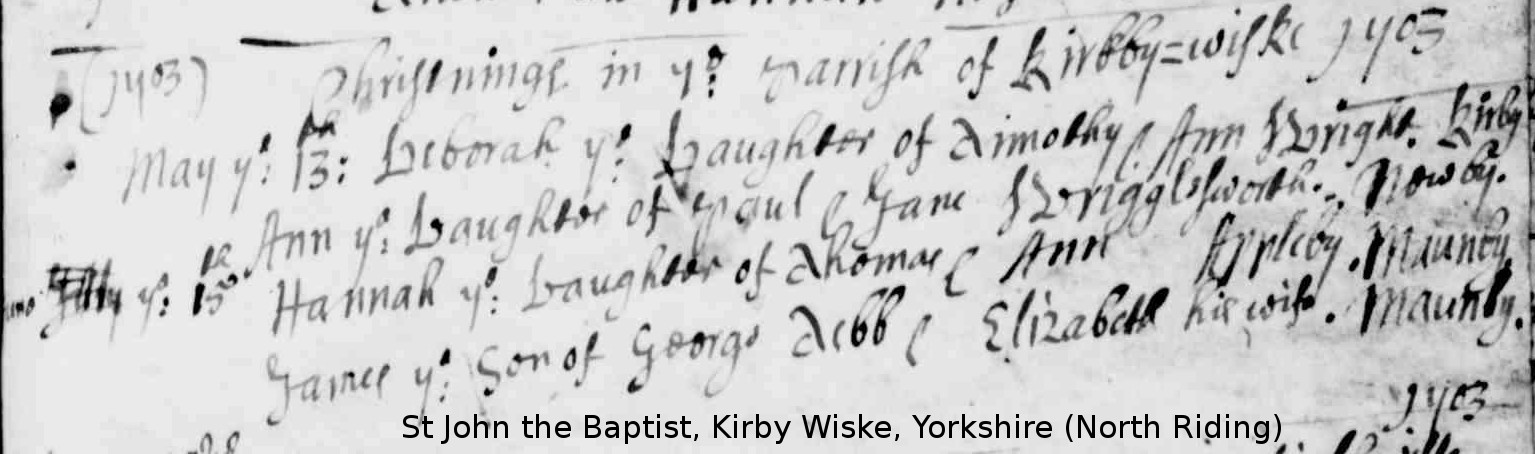 (1703) Christnings in ye Parrish of Kirkby=wiske 1703
May ye: 13th: Deborah ye: Daughter of Timothy & Ann Wright. Kirby
Ann ye: Daughter of Paul & Jane Wrigglesworth. Newby.
ye: 15th Hannah ye: Daughter of Thomas & Ann Appleby. Maunby.
James ye: Son of George Tebb & Elizabeth his wife. Maunby.
1703
St John the Baptist, Kirby Wiske, Yorkshire (North Riding)